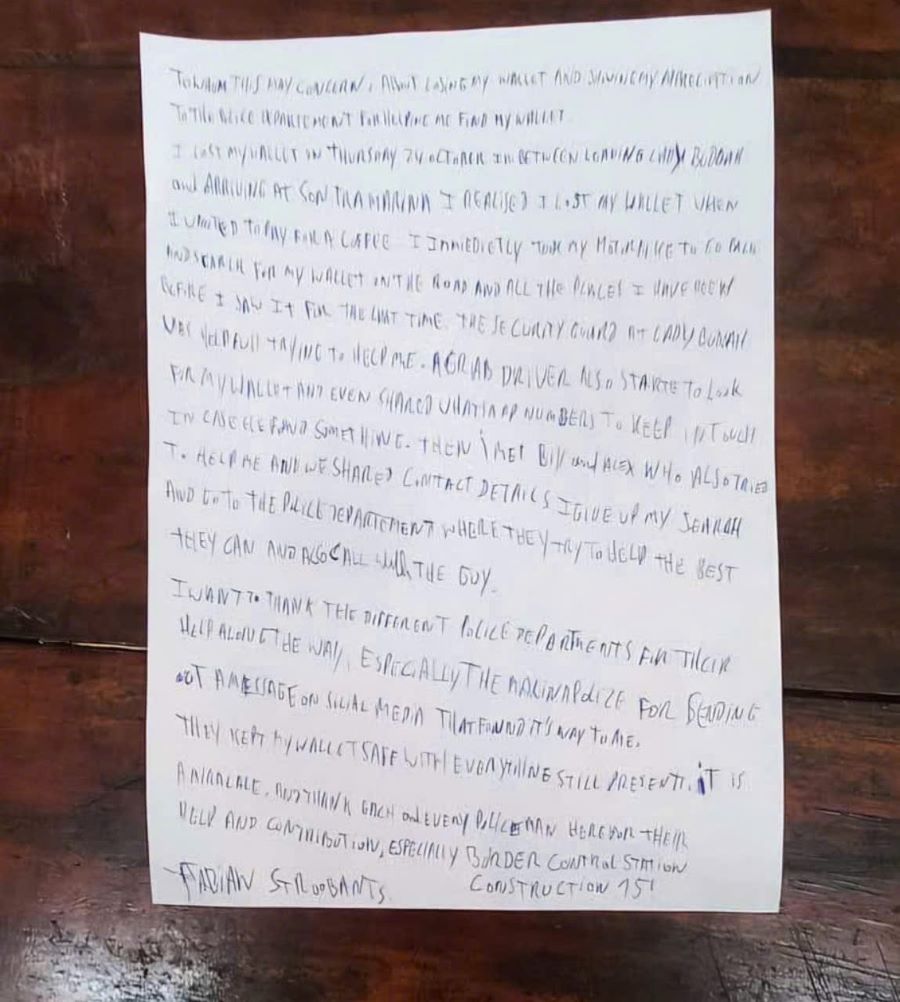 TO WHOM THIS MAY CONCERN, ABOUT LOSING MY WALLET AND SHOWING MY APPRECIATION
TO THE POLICE DEPARTEMENT FOR HELPING ME FIND MY WALLET.
I LOST MY WALLET ON THURSDAY 24 OCTOBER IN BETWEEN LEAVING LADY BUDDAH
and ARRIVING AT SON TRA MARINA I REALISED I LOST MY WALLET WHEN
I WANTED TO PAY FOR A COFFEE. I IMMEDIETLY TOOK MY MOTORBIKE TO GO BACK
AND SEARCH FOR MY WALLET ON THE ROAD AND ALL THE PLACES I HAVE BEEN
BEFORE I SAW IT FOR THE LAST TIME. THE SECURITY GUARD AT LADY BUDAH
WAS HELPFULL TRYING TO HELP ME. A GRAB DRIVER ALSO STARTE TO LOOK
FOR MY WALLET AND EVEN SHARED WHATSAPP NUMBERS TO KEEP IN TOUCH
IN CASE HE FOUND SOMETHING. THEN I MET Bill and ALEX WHO ALSO TRIED
TO HELP ME AND WE SHARED CONTACT DETAILS I GIVE UP MY SEARCH
AND GO TO THE POLICE DEPARTEMENT WHERE THEY TRY TO HELP THE BEST
THEY CAN AND ALSO CALL with THE GUY.
I WANT TO THANK THE DIFFERENT POLICE DEPARTMENTS FOR THEIR
HELP ALONG THE WAY, ESPECIALLY THE FOR SENDING
OUT A MESSAGE ON SOCIAL MEDIA THAT FOUND IT'S WAY TO ME.
THEY KEPT MY WALLET SAFE WITH EVERYTHING STILL PRESENT. IT IS
AND THANK EACH and EVERY POLICEMAN HERE FOR THEIR
HELP AND CONTRIBUTION, ESPECIALLY BORDER CONTROL STATION
-FABIAN STROOBANTS. CONSTRUCTION 15!